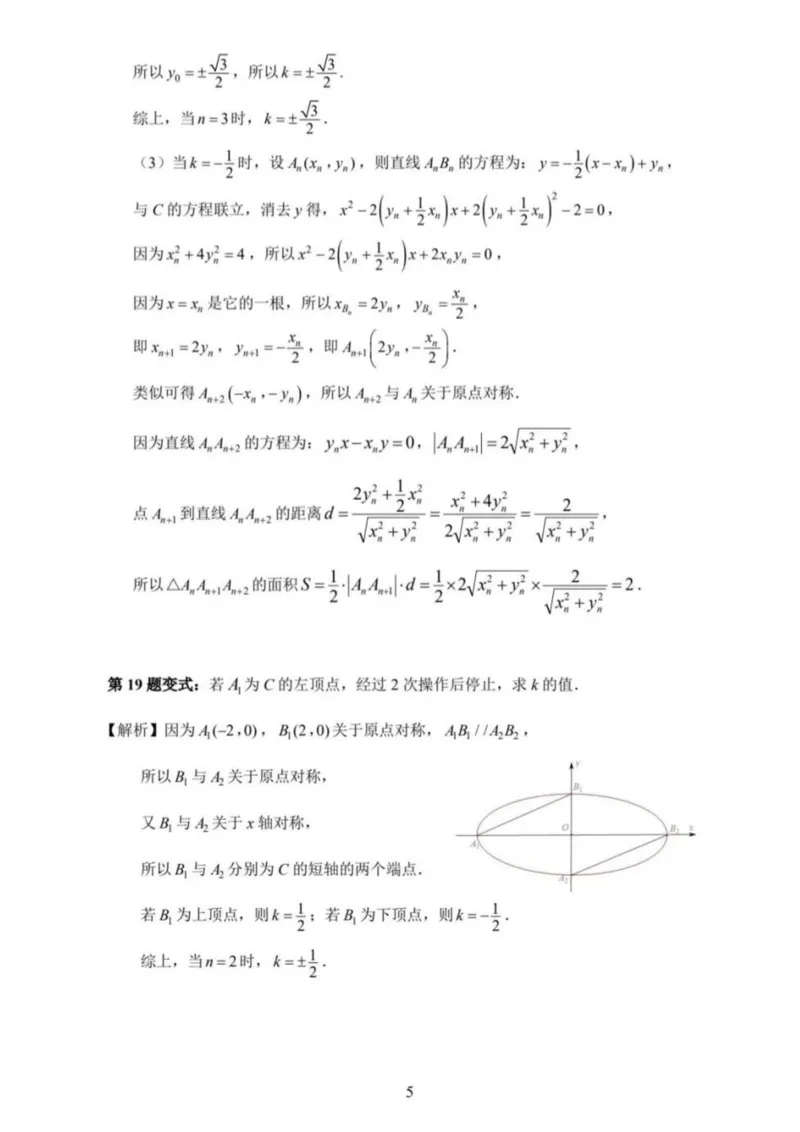 所以y₀=±√3/2，所以k=±√3/2.
综上，当n=3时，k=±√3/2.
（3）当k=-1/2时，设Aₙ(xₙ，yₙ)，则直线AₙBₙ的方程为：y=-1/2(x-xₙ)+yₙ，
与C的方程联立，消去y得，x²-2(yₙ+1/2xₙ)x+2(yₙ+1/2xₙ)²-2=0，
因为xₙ²+4yₙ²=4，所以x²-2(yₙ+1/2xₙ)x+2xₙyₙ=0，
因为x=xₙ是它的一根，所以x_{Bₙ}=2yₙ，y_{Bₙ}=xₙ/2，
即xₙ₊₁=2yₙ，yₙ₊₁=-xₙ/2，即Aₙ₊₁(2yₙ，-xₙ/2).
类似可得Aₙ₊₂(-xₙ，-yₙ)，所以Aₙ₊₂与Aₙ关于原点对称.
因为直线AₙAₙ₊₂的方程为：yₙx-xₙy=0，|AₙAₙ₊₁|=2√(xₙ²+yₙ²)，
点Aₙ₊₁到直线AₙAₙ₊₂的距离d=(2yₙ²+1/2xₙ²)/√(xₙ²+yₙ²)=(xₙ²+4yₙ²)/(2√(xₙ²+yₙ²))=2/√(xₙ²+yₙ²)，
所以△AₙAₙ₊₁Aₙ₊₂的面积S=1/2·|AₙAₙ₊₁|·d=1/2×2√(xₙ²+yₙ²)×2/√(xₙ²+yₙ²)=2.
第19题变式：若A₁为C的左顶点，经过2次操作后停止，求k的值.
【解析】因为A₁(-2,0)，B₁(2,0)关于原点对称，A₁B₁//A₂B₂，
所以B₁与A₂关于原点对称，
又B₁与A₂关于x轴对称，
所以B₁与A₂分别为C的短轴的两个端点.
若B₁为上顶点，则k=1/2；若B₁为下顶点，则k=-1/2.
综上，当n=2时，k=±1/2.
y
B₁
O
B₂
x
A₁
A₂
5